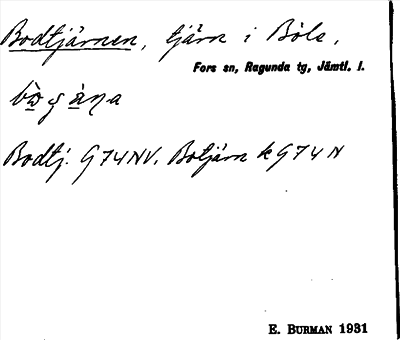 Bodtjärnen, tjärn i Böle,
Fors sn, Ragunda tg, Jämtl. l.
Bodtj. G74NV. Botjärn k G74N
E. BURMAN 1931